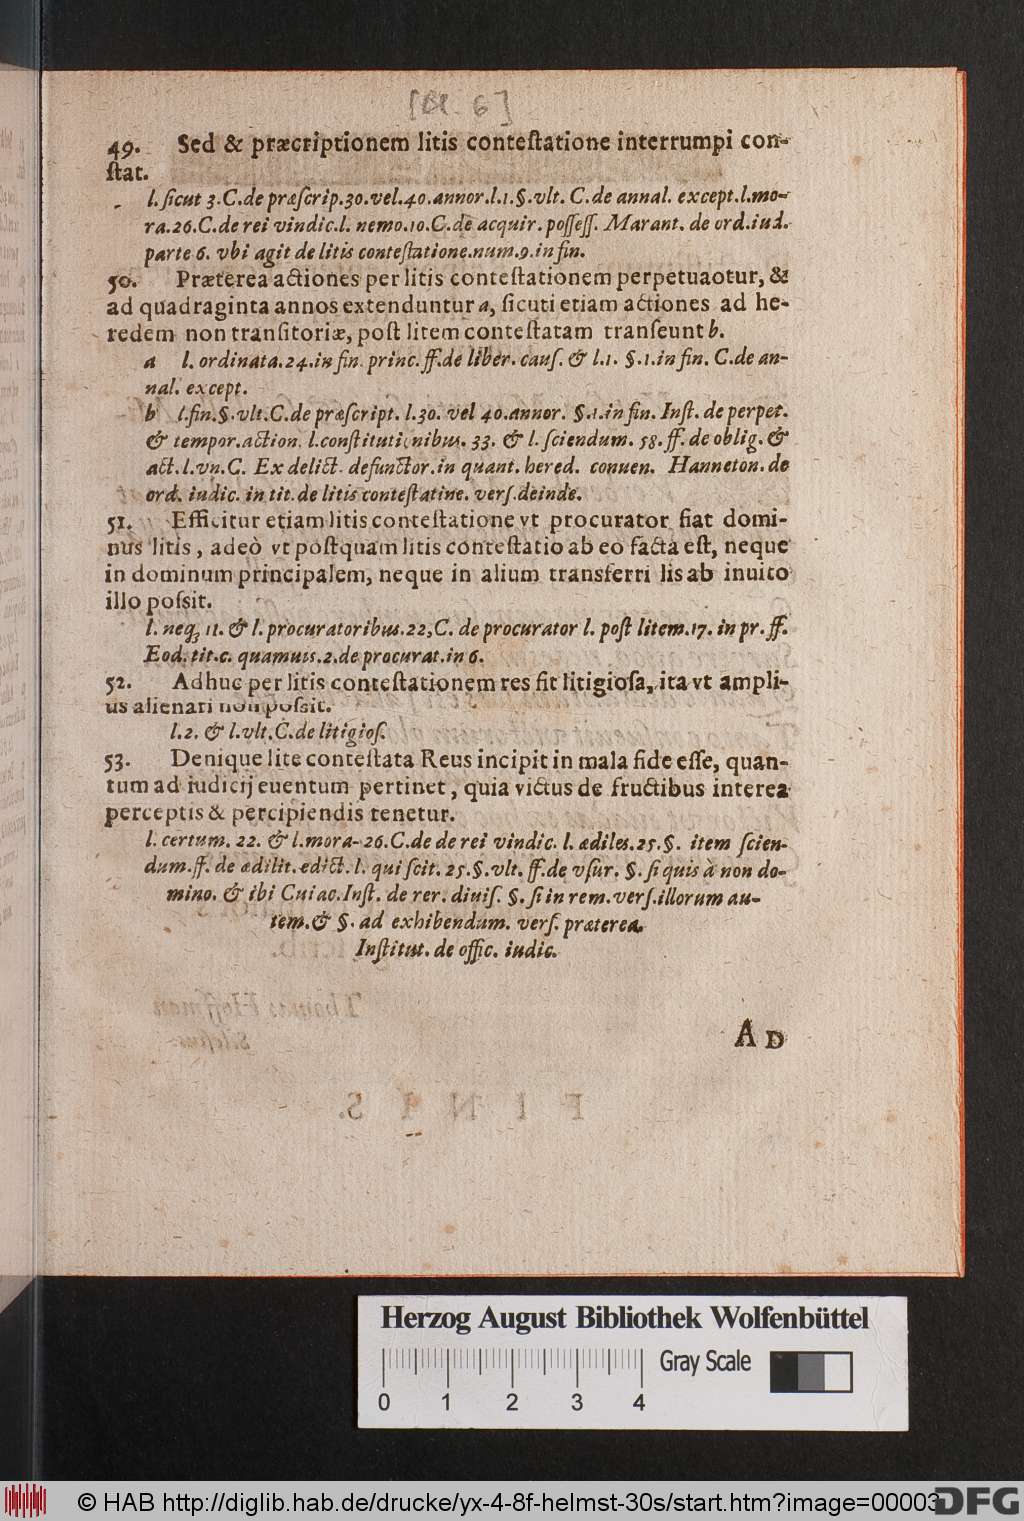 [Bl. 6]
49. Sed & præcriptionem litis conteſtatione interrumpi con-
ſtat.
l. ſicut 3. C. de præſcrip. 30. vel. 40. annor. l. 1. §. vlt. C. de annal. except. l. mo-
ra. 26. C. de rei vindic. l. nemo. 10. C. de acquir. poſſeſſ. Marant. de ord. iud.
parte 6. vbi agit de litis conteſtatione. num. 9. in fin.
50. Præterea actiones per litis conteſtationem perpetuaotur, &
ad quadraginta annos extenduntur a, ſicuti etiam actiones ad he-
redem non tranſitoriæ, poſt litem conteſtatam tranſeunt b.
a l. ordinata. 24. in fin. princ. ff. de liber. cauſ. & l. 1. §. 1. in fin. C. de an-
nal. except.
b l. fin. §. vlt. C. de præſcript. l. 30. vel 40. annor. §. 1. in fin. Inſt. de perpet.
& tempor. action. l. conſtitutionibus. 33. & l. ſciendum. 58. ff. de oblig. &
act. l. vn. C. Ex delict. defunctor. in quant. hered. conuen. Hanneton. de
ord. iudic. in tit. de litis conteſtatine. verſ. deinde.
51. Efficitur etiam litis conteſtatione vt procurator fiat domi-
nus litis, adeò vt poſtquam litis conteſtatio ab eo facta eſt, neque
in dominum principalem, neque in alium transferri lis ab inuito
illo poſsit.
l. neq; 11. & l. procuratoribus. 22, C. de procurator l. poſt litem. 17. in pr. ff.
Eod. tit. c. quamuis. 2. de procurat. in 6.
52. Adhuc per litis conteſtationem res fit litigioſa, ita vt ampli-
us alienari non poſsit.
l. 2. & l. vlt. C. de litigioſ.
53. Denique lite conteſtata Reus incipit in mala fide eſſe, quan-
tum ad iudicij euentum pertinet, quia victus de fructibus interea
perceptis & percipiendis tenetur.
l. certum. 22. & l. mora- 26. C. de de rei vindic. l. ædiles. 25. §. item ſcien-
dum. ff. de ædilit. edict. l. qui ſcit. 25. §. vlt. ff. de vſur. §. ſi quis à non do-
mino. & ibi Cuiac. Inſt. de rer. diuiſ. §. ſi in rem. verſ. illorum au-
tem. & §. ad exhibendum. verſ. præterea.
Inſtitut. de offic. iudic.
AD
Herzog August Bibliothek Wolfenbüttel
Gray Scale
0 1 2 3 4
© HAB http://diglib.hab.de/drucke/yx-4-8f-helmst-30s/start.htm?image=00003
DFG